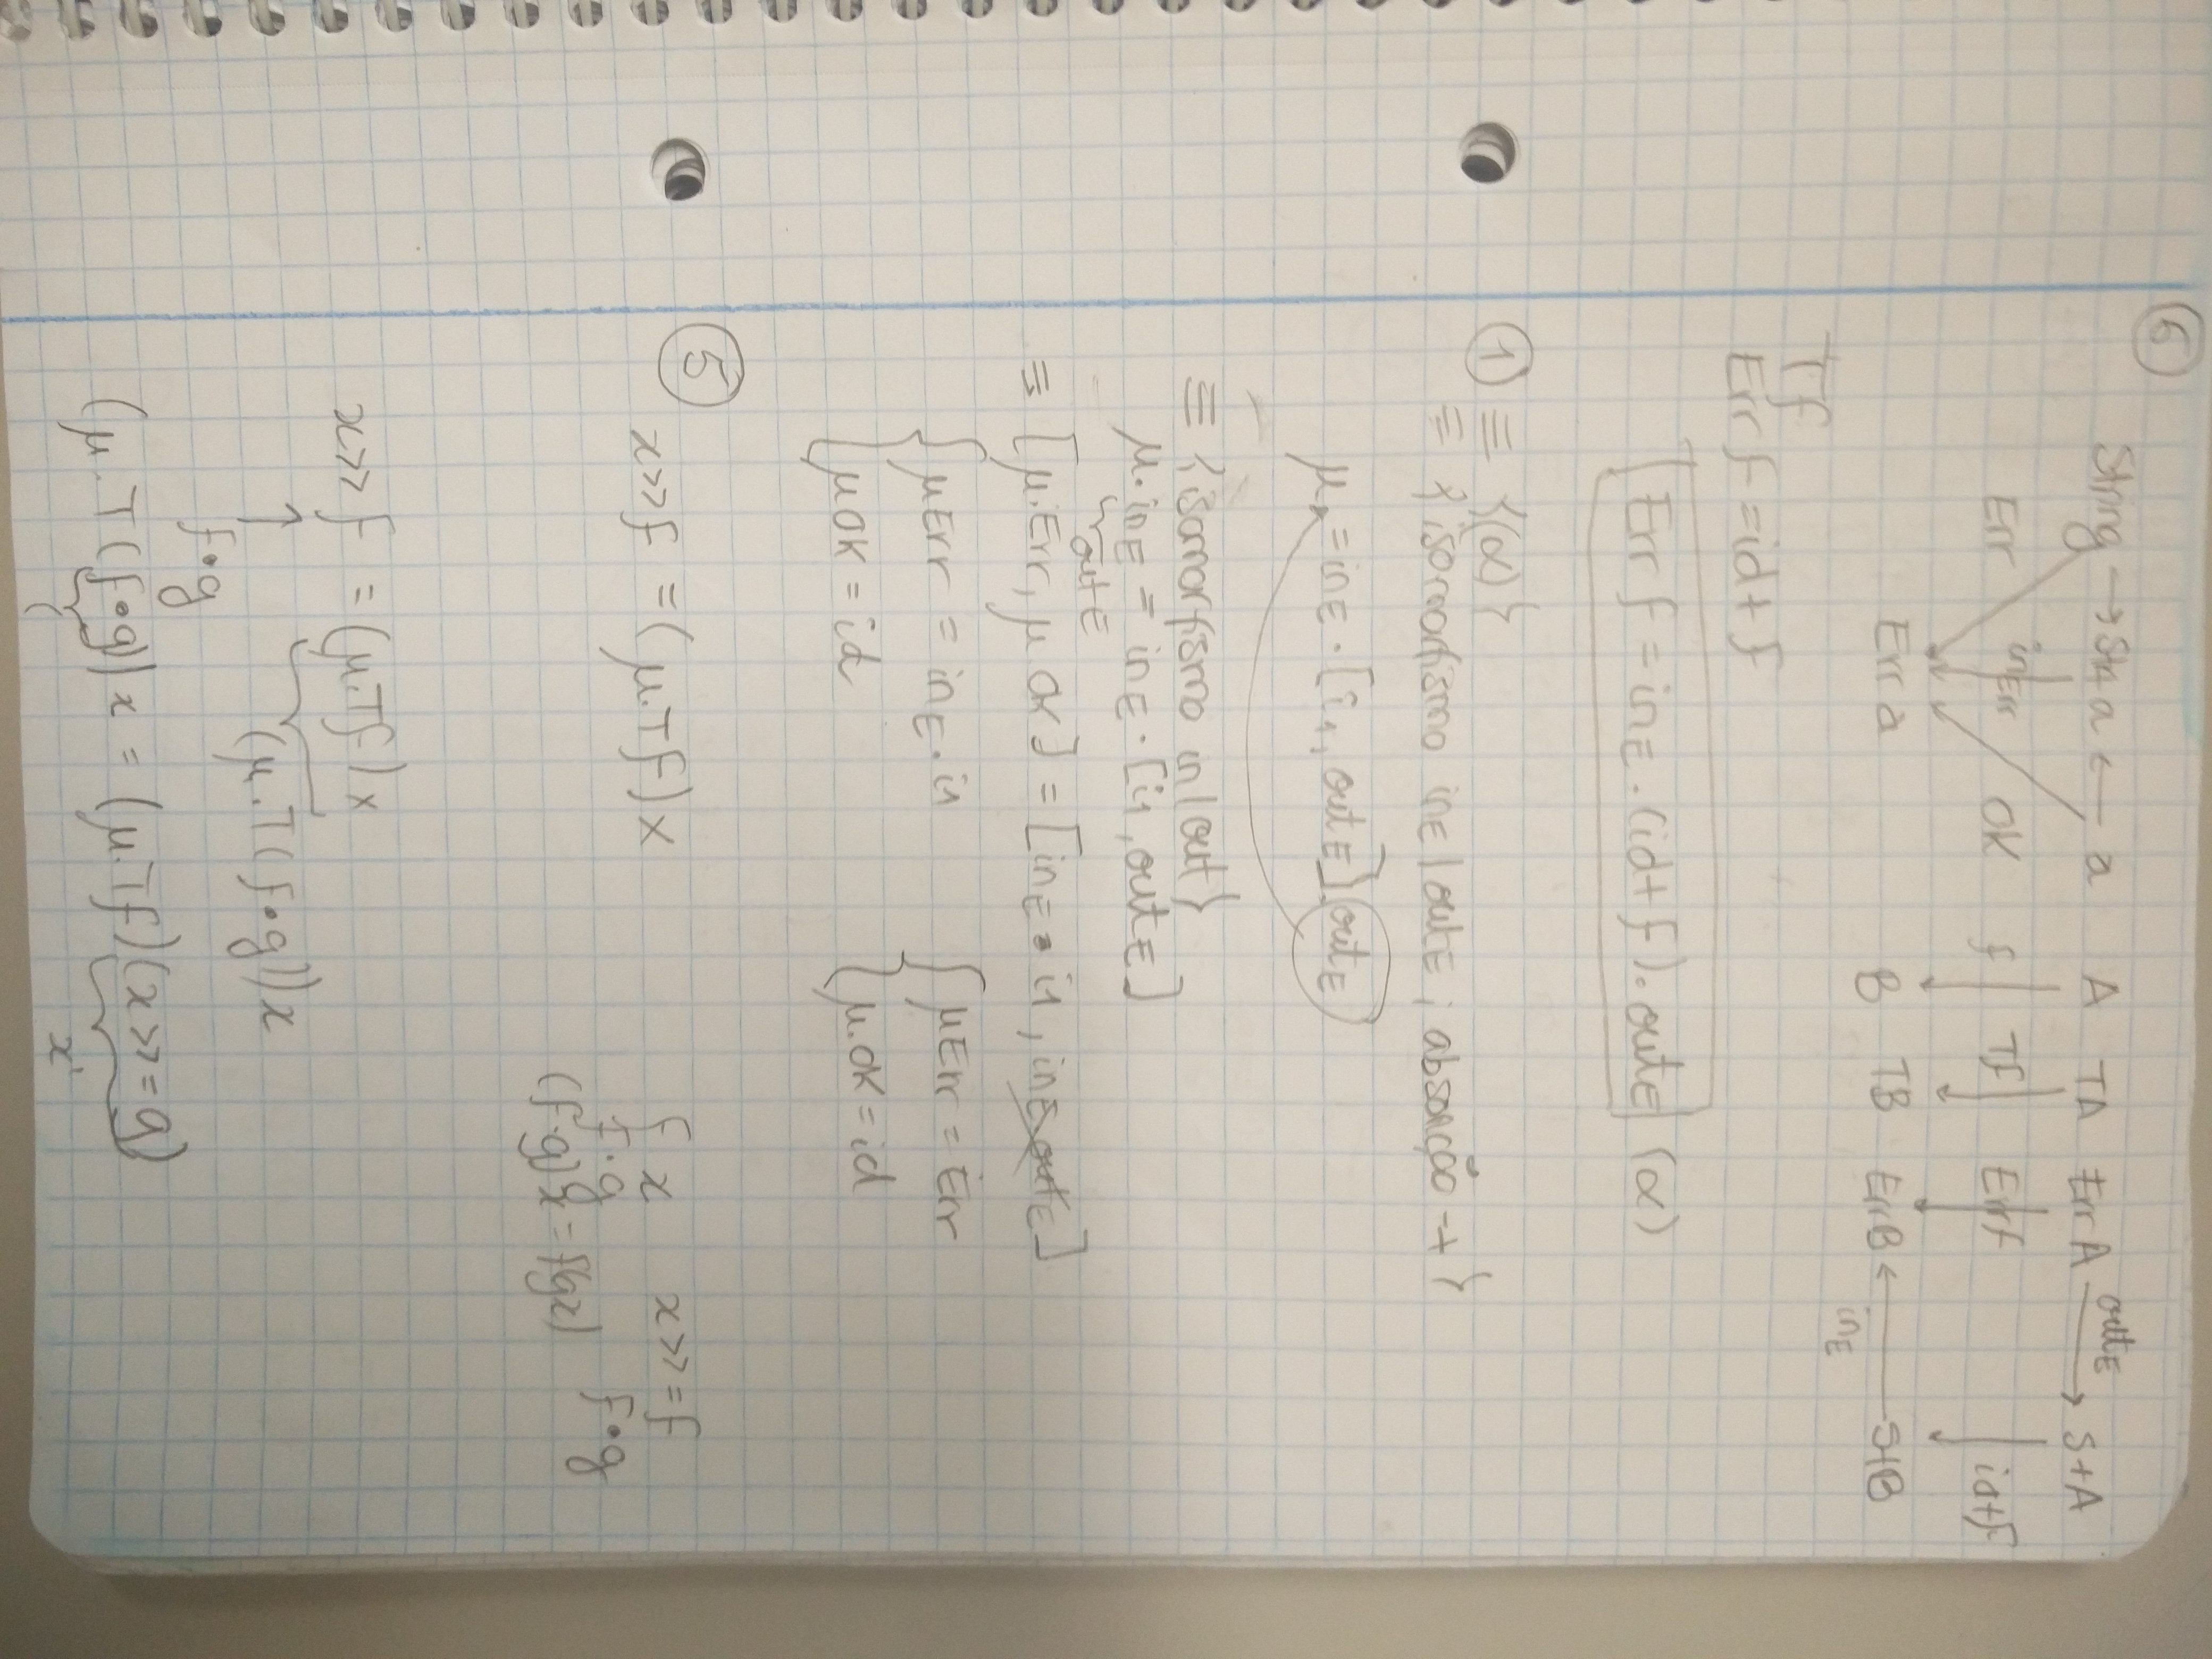 6
String → Str+a ← a A TA Err A outE → S+A
Err inErr OK f Tf Err f id+f
Err a B TB Err B ← inE S+B
Tf
Err f = id + f
Err f = inE . (id + f) . outE (α)
1 ≡ {(α)}
≡ {isomorfismo inE | outE ; absorção -+}
μ = inE . [i1, outE] . outE
≡ {isomorfismo in | out}
μ . inE = inE . [i1, outE]
outE
≡ [μ.Err, μ OK] = [inE . i1, inE outE]
μ Err = inE . i1 μ Err = Err
μ OK = id μ.OK = id
5
x >> f = (μ.Tf) x f x x >>= f
f.g f•g
(f.g) x = f(gx)
x >> f = (μ.Tf) x
(μ.T(f•g)) x
↑
f•g
(μ.T(f•g)) x = (μ.Tf)(x >>= g)
x'